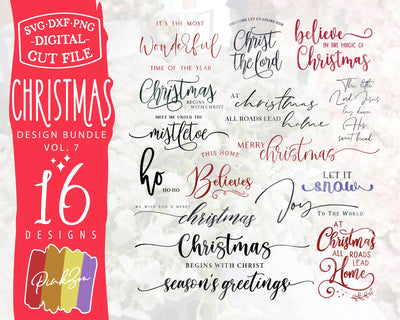 SVG•DXF•PNG
-DIGITAL-
CUT FILE
CHRISTMAS
DESIGN BUNDLE
VOL. 7
16
DESIGNS
PinkZou
IT'S THE MOST
Wonderful
TIME OF THE YEAR
OH COME LET US ADORE HIM
Christ
the Lord
believe
IN THE MAGIC OF
Christmas
Christmas
BEGINS WITH CHRIST
MEET ME UNDER THE
mistletoe
AT christmas
ALL ROADS LEAD home
The little
Lord Jesus
lays down
His
sweet head
ho
HO HO
THIS HOME
Believes
MERRY christmas
LET IT
snow
Joy
TO THE WORLD
WE WISH YOU A MERRY
christmas
Christmas
BEGINS WITH CHRIST
season's greetings
AT
Christmas
ALL ROADS
LEAD
Home